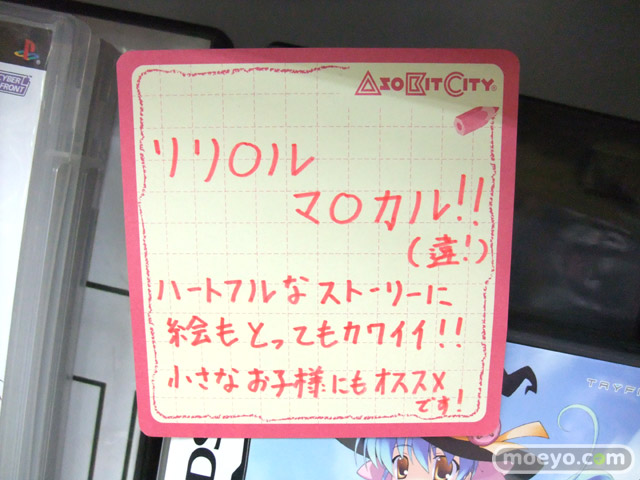 CYBER
FRONT
ASOBITCITY
リリ○ル
マ○カル!!
(違!)
ハートフルなストーリーに
絵もとってもカワイイ!!
小さなお子様にもオススメ
です!
DS
moeyo.com